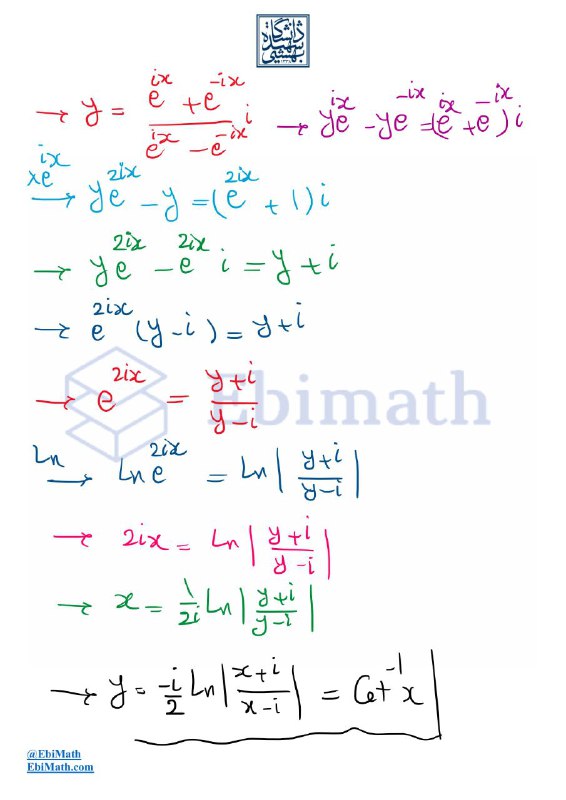 دانشگاه شهید بهشتی
→ y = (e^{ix} + e^{-ix})/(e^{ix} - e^{-ix}) i → ye^{ix} - ye^{-ix} = (e^{ix} + e^{-ix}) i
×e^{ix} → ye^{2ix} - y = (e^{2ix} + 1) i
→ ye^{2ix} - e^{2ix} i = y + i
→ e^{2ix} (y - i) = y + i
→ e^{2ix} = (y+i)/(y-i)
Ebimath
Ln → Ln e^{2ix} = Ln |(y+i)/(y-i)|
→ 2ix = Ln |(y+i)/(y-i)|
→ x = 1/2i Ln |(y+i)/(y-i)|
→ y = -i/2 Ln |(x+i)/(x-i)| = Cot^{-1} x
@EbiMath
EbiMath.com